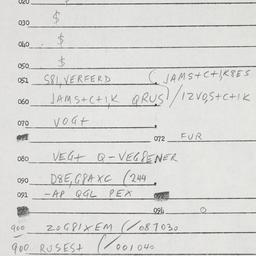 020
030 $
040 $
050 $
051 S81,VERFERD (JAMS+C+1K8ES
060 JAMS+C+1,K QRUS)/12V0,S+C+1K
070 VOG+
072 FUR
080 VEG+ Q-VEG8ENER
090 D8E,G8AXC (244
091 -AP QGL PEX
096 0
900 20G81XEM (/087030
900 RUSES+ (/001040